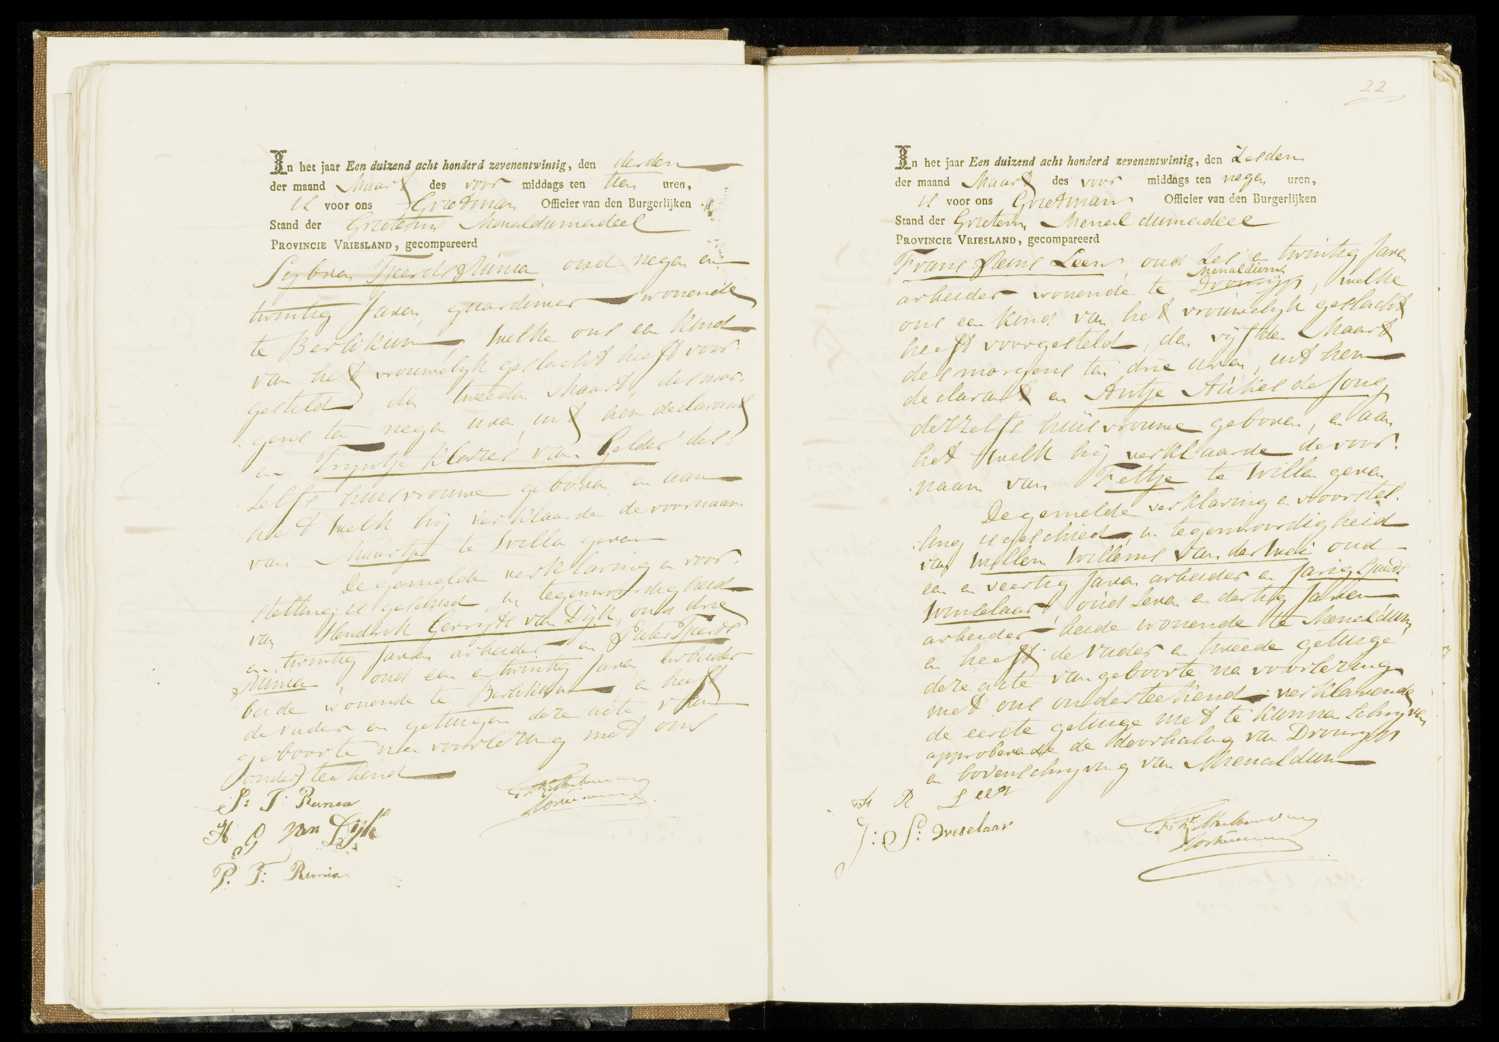 In het jaar Een duizend acht honderd zevenentwintig, den derden
der maand Maart des voor middags ten tien uren,
is voor ons Grietman Officier van den Burgerlijken
Stand der Grietenij Menaldumadeel
PROVINCIE VRIESLAND, gecompareerd
Sijbren Tjeerds Runia oud negen en
twintig Jaren, gardenier wonende
te Berlikum, welke ons een kind
van het vrouwelijk geslacht heeft voor
gesteld den tweeden Maart des mor
gens ten negen uren, uit hem declarant
en Trijntje Klazes van Gelder des
zelfs huisvrouwe geboren en aan
het welk hij verklaarde de voornaam
van Maartje te willen geven
De gemelde verklaring en voor
stelling is geschied in tegenwoordigheid
van Hendrik Gerrijts van Dijk, oud drie
en twintig Jaren arbeider en Pieter Tjeerds
Runia, oud een en twintig Jaren arbeider
beide wonende te Berlikum, en heeft
de vader en getuigen deze acte van
geboorte na voorlezing met ons
onderteekend
S: T: Runia
H G van Dijk
P: T: Runia
22
In het jaar Een duizend acht honderd zevenentwintig, den Zesden
der maand Maart des voor middags ten negen uren,
is voor ons Grietman Officier van den Burgerlijken
Stand der Grietenij Menaldumadeel
PROVINCIE VRIESLAND, gecompareerd
Frans Leer, oud Zes en twintig Jaren
Menaldum
arbeider wonende te Dronrijp, welke
ons een kind van het vrouwelijk geslacht
heeft voorgesteld, den vijfden Maart
des morgens ten drie uren, uit hem
declarant en Antje Aukes de Jong
deszelfs huisvrouwe geboren, en aan
het welk hij verklaarde de voor
naam van Feltje te willen geven
De gemelde verklaring en voorstel
ling is geschied in tegenwoordigheid
van Willem Willems van der Werf oud
een en veertig Jaren arbeider en Jarig Sjoerds
Wisselaar, oud Zeven en dertig Jaren
arbeider beide wonende te Menaldum
en heeft de vader en tweede getuige
deze acte van geboorte na voorlezing
met ons onderteekend, verklarende
de eerste getuige niet te kunnen schrijven
approberende de doorhaling van Dronrijp
en bovenschrijving van Menaldum
F R Leer
J: S: Wisselaar